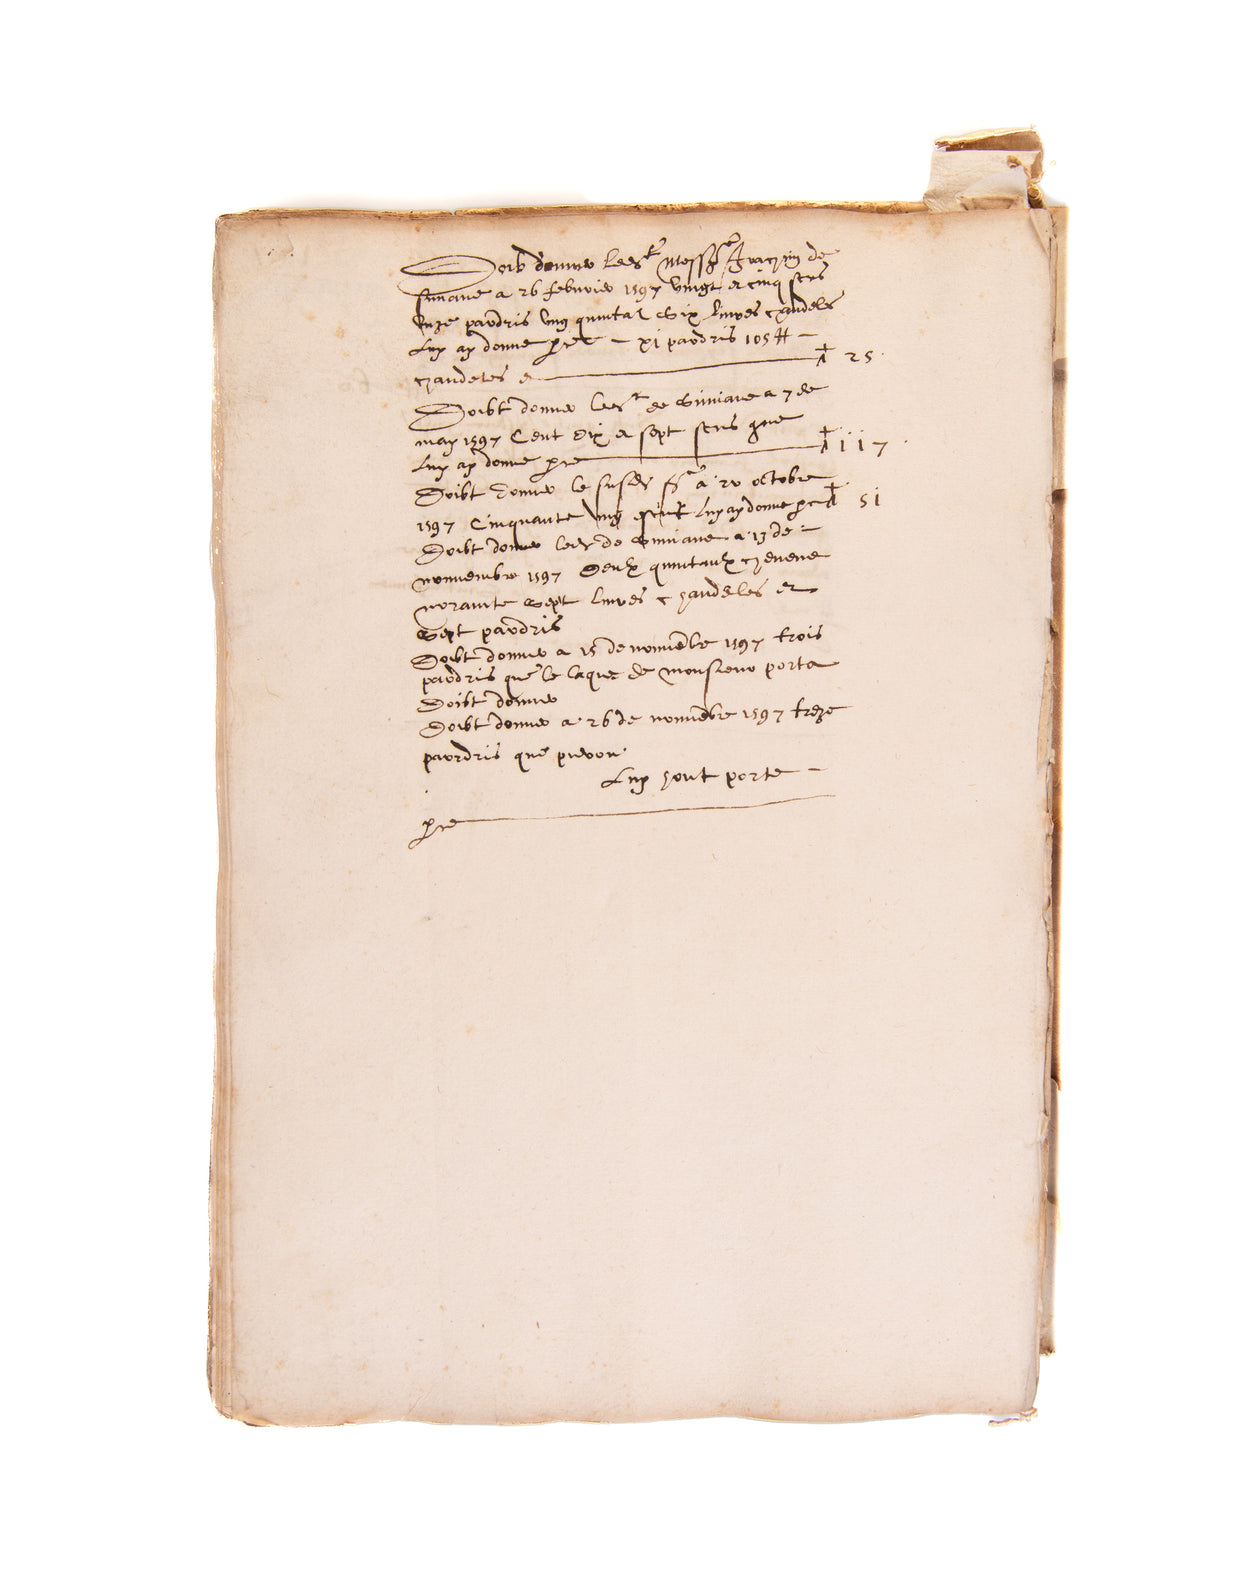 Doib donner le sr mess Joachin de
simiane a 26 febvrier 1597 vingt et cinq scus
unze paordris ung quintal six livres chandeles
luy ay donne pce — xi paordris 105 ₶ —
chandeles et 25
Doibt donner le sr de Simiane a 7 de
may 1597 Cent dix et sept scus que
luy ay donne pce 117
Doibt donner le susdi sr a 20 octobre
1597 Cinquante ung escut luy ay donne pce 51
Doibt donner le sr de Simiane a 13 de —
nonvembre 1597 deulx quintaulx
noranite sept livres chandeles et
sept paordris
Doibt donner a 15 de nonvembre 1597 trois
paordris que le laque de monsieur porta
Doibt donner
Doibt donner a 26 de nonvembre 1597 treze
paordris que
luy hont porte —
pce